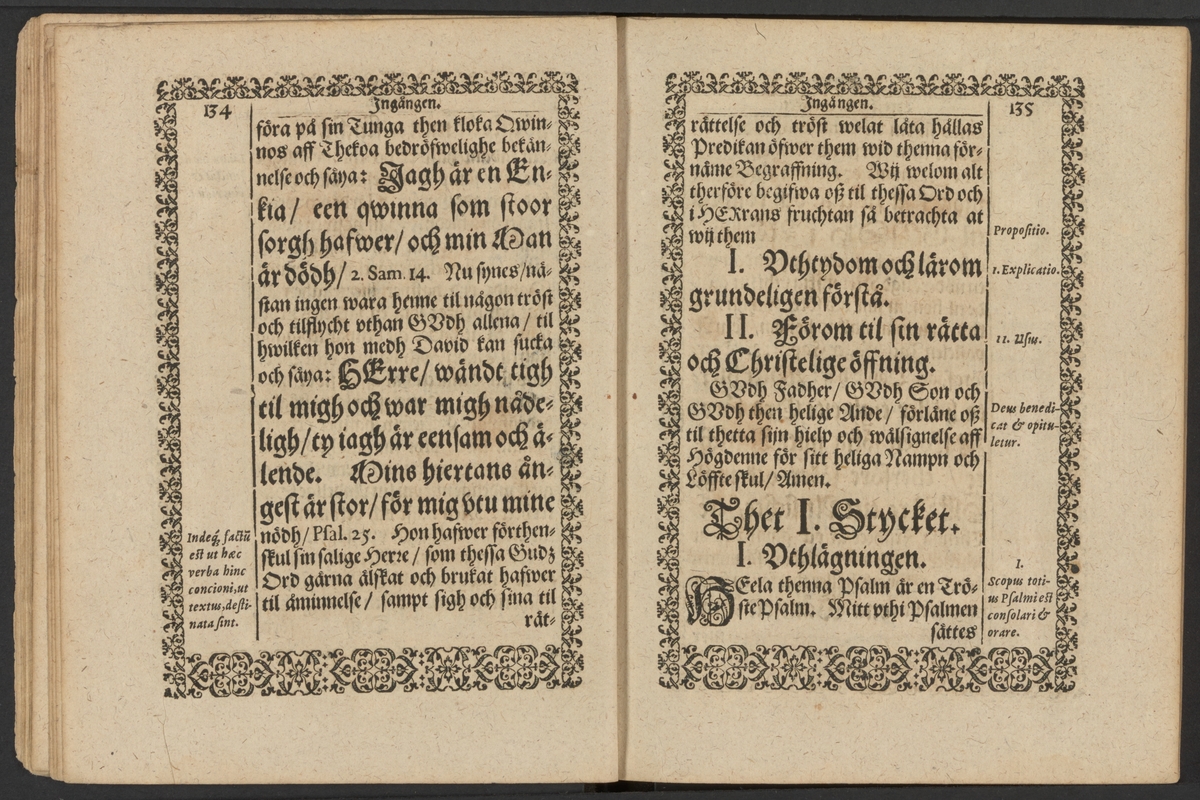 134
Ingången.
föra på sin Tunga then kloka Qwin-
nos aff Thekoa bedröfwelighe bekän-
nelse och säya: Jagh är en En-
kia/ een qwinna som stoor
sorgh hafwer/ och min Man
är dödh/ 2. Sam. 14. Nu synes/ nä-
stan ingen wara henne til någon tröst
och tilflycht vthan GVdh allena/ til
hwilken hon medh David kan sucka
och säya: HErre/ wändt tigh
til migh och war migh nåde-
ligh/ ty iagh är eensam och ä-
lende. Mins hiertans ån-
gest är stor/ för mig vtu mine
nödh/ Psal. 25. Hon hafwer förthen-
skul sin salige Herre/ som thessa Gudz
Ord gärna älskat och brukat hafwer
til åminnelse/ sampt sigh och sina til
rät-
Indeq́; factū
est ut hæc
verba hinc
concioni, ut
textus, desti-
nata sint.
Ingången.
135
rättelse och tröst welat låta hållas
Predikan öfwer them wid thenna för-
näme Begraffning. Wij welom alt
therföre begifwa oß til thessa Ord och
i HERrans fruchtan så betrachta at
wij them
I. Vthtydom och lärom
grundeligen förstå.
II. Förom til sin rätta
och Christelige öffning.
GVdh Fadher/ GVdh Son och
GVdh then helige Ande/ förläne oß
til thetta sijn hielp och wälsignelse aff
Högdenne för sitt heliga Nampn och
Löffte skul/ Amen.
Thet I. Stycket.
I. Vthlägningen.
HEela thenna Psalm är en Trö-
ste Psalm. Mitt vthi Psalmen
sättes
Propositio.
1. Explicatio.
11. Usus.
Deus benedi-
cat & opitu-
letur.
I.
Scopus toti-
us Psalmi est
consolari &
orare.